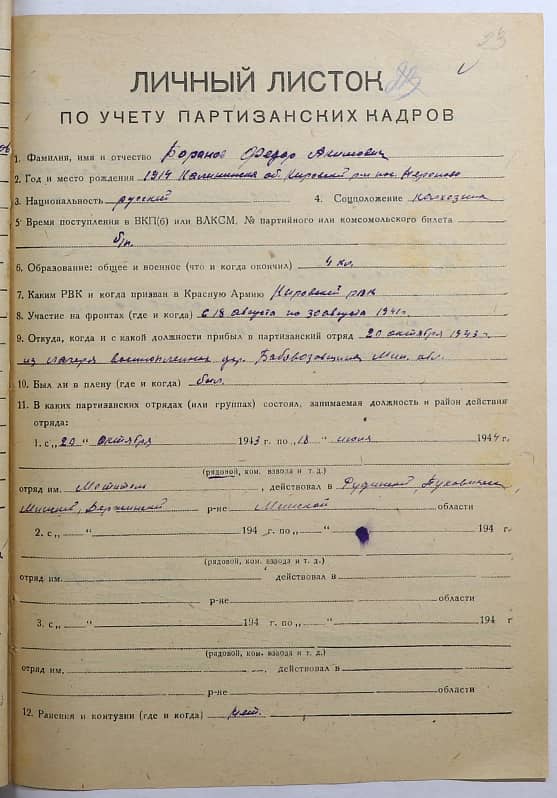 23
ЛИЧНЫЙ ЛИСТОК
ПО УЧЕТУ ПАРТИЗАНСКИХ КАДРОВ
1. Фамилия, имя и отчество Боранов Федор Акимович
2. Год и место рождения 1914 Калининская об Кировский р-н пос.
3. Национальность русский 4. Соцположение колхозник
5. Время поступления в ВКП(б) или ВЛКСМ, № партийного или комсомольского билета
б/п.
6. Образование: общее и военное (что и когда окончил) 4 кл.
7. Каким РВК и когда призван в Красную Армию Кировский рвк
8. Участие на фронтах (где и когда) с 18 августа по 30 августа 1941г.
9. Откуда, когда и с какой должности прибыл в партизанский отряд 20 октября 1943г
из лагеря военнопленных дер. Мин. обл.
10. Был ли в плену (где и когда) был.
11. В каких партизанских отрядах (или группах) состоял, занимаемая должность и район действия
отряда:
1. с „20" октября 1943 г. по „18" июля 1944 г.
(рядовой, ком. взвода и т. д.)
отряд им. Мститель, действовал в Руденск, Пуховическ,
Минский, Дзержинский р-не Минской области
2. с „ " 194 г. по „ " 194 г.
(рядовой, ком. взвода и т. д.)
отряд им. действовал в
р-не области
3. с „ " 194 г. по „ " 194 г
(рядовой, ком. взвода и т. д.)
отряд им. , действовал в
р-не области
12. Ранения и контузии (где и когда) нет.